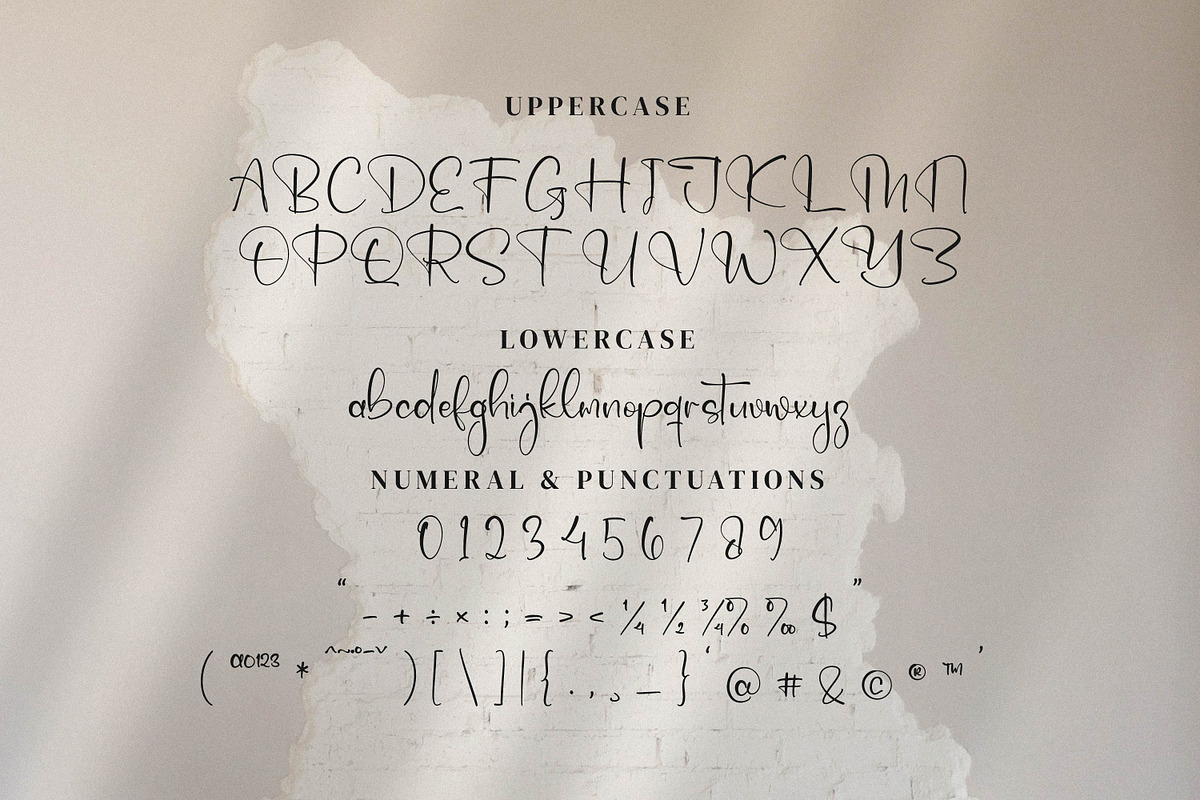 UPPERCASE
ABCDEFGHIJKLMN
OPQRSTUVWXYZ
LOWERCASE
abcdefghijklmnopqrstuvwxyz
NUMERAL & PUNCTUATIONS
0 1 2 3 4 5 6 7 8 9
“ ”
- + ÷ × : ; = > < ¼ ½ ¾ % ‰ $
( ao123 * ) [ \ ] | { . , ¸ _ } ‘ @ # & © ® ™ ’